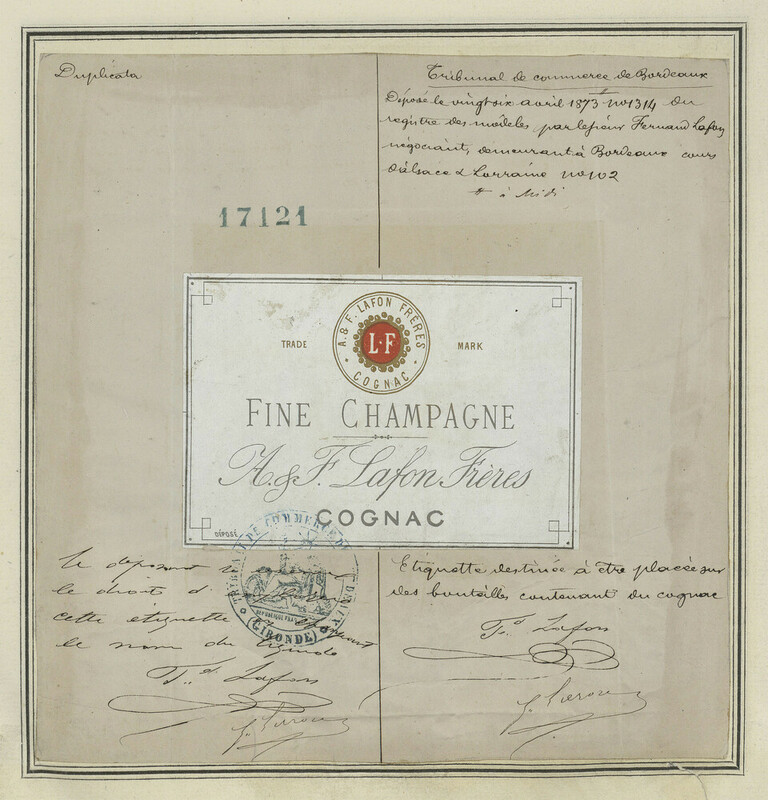 Duplicata
Tribunal de commerce de Bordeaux
Déposé le vingt six avril 1873 no 1314 du
registre des modèles par le sieur Fernand Lafon
négociant, demeurant à Bordeaux cours
d'alsace & Lorraine no 102
à Midi
17121
A. & F. LAFON FRÈRES
L·F
COGNAC
TRADE MARK
FINE CHAMPAGNE
A. & F. Lafon Frères
COGNAC
DÉPOSÉ
TRIBUNAL DE COMMERCE DE BORDEAUX
RÉPUBLIQUE FRANÇAISE
(GIRONDE)
Le déposant se
le droit d'
cette étiquette en
le nom du
F.d Lafon
Etiquette destinée à être placée sur
des bouteilles contenant du cognac
F.d Lafon